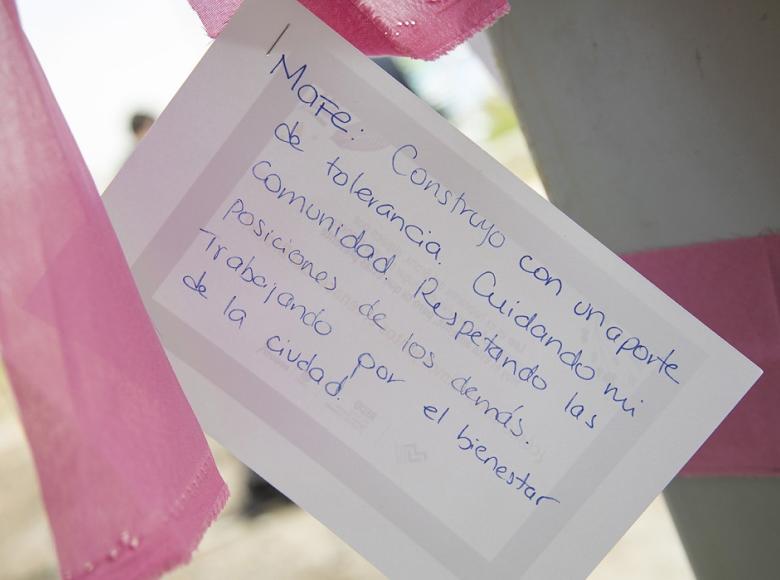 MaFe: Construyo con un aporte
de tolerancia. Cuidando mi
comunidad. Respetando las
posiciones de los demás.
Trabajando por el bienestar
de la ciudad.